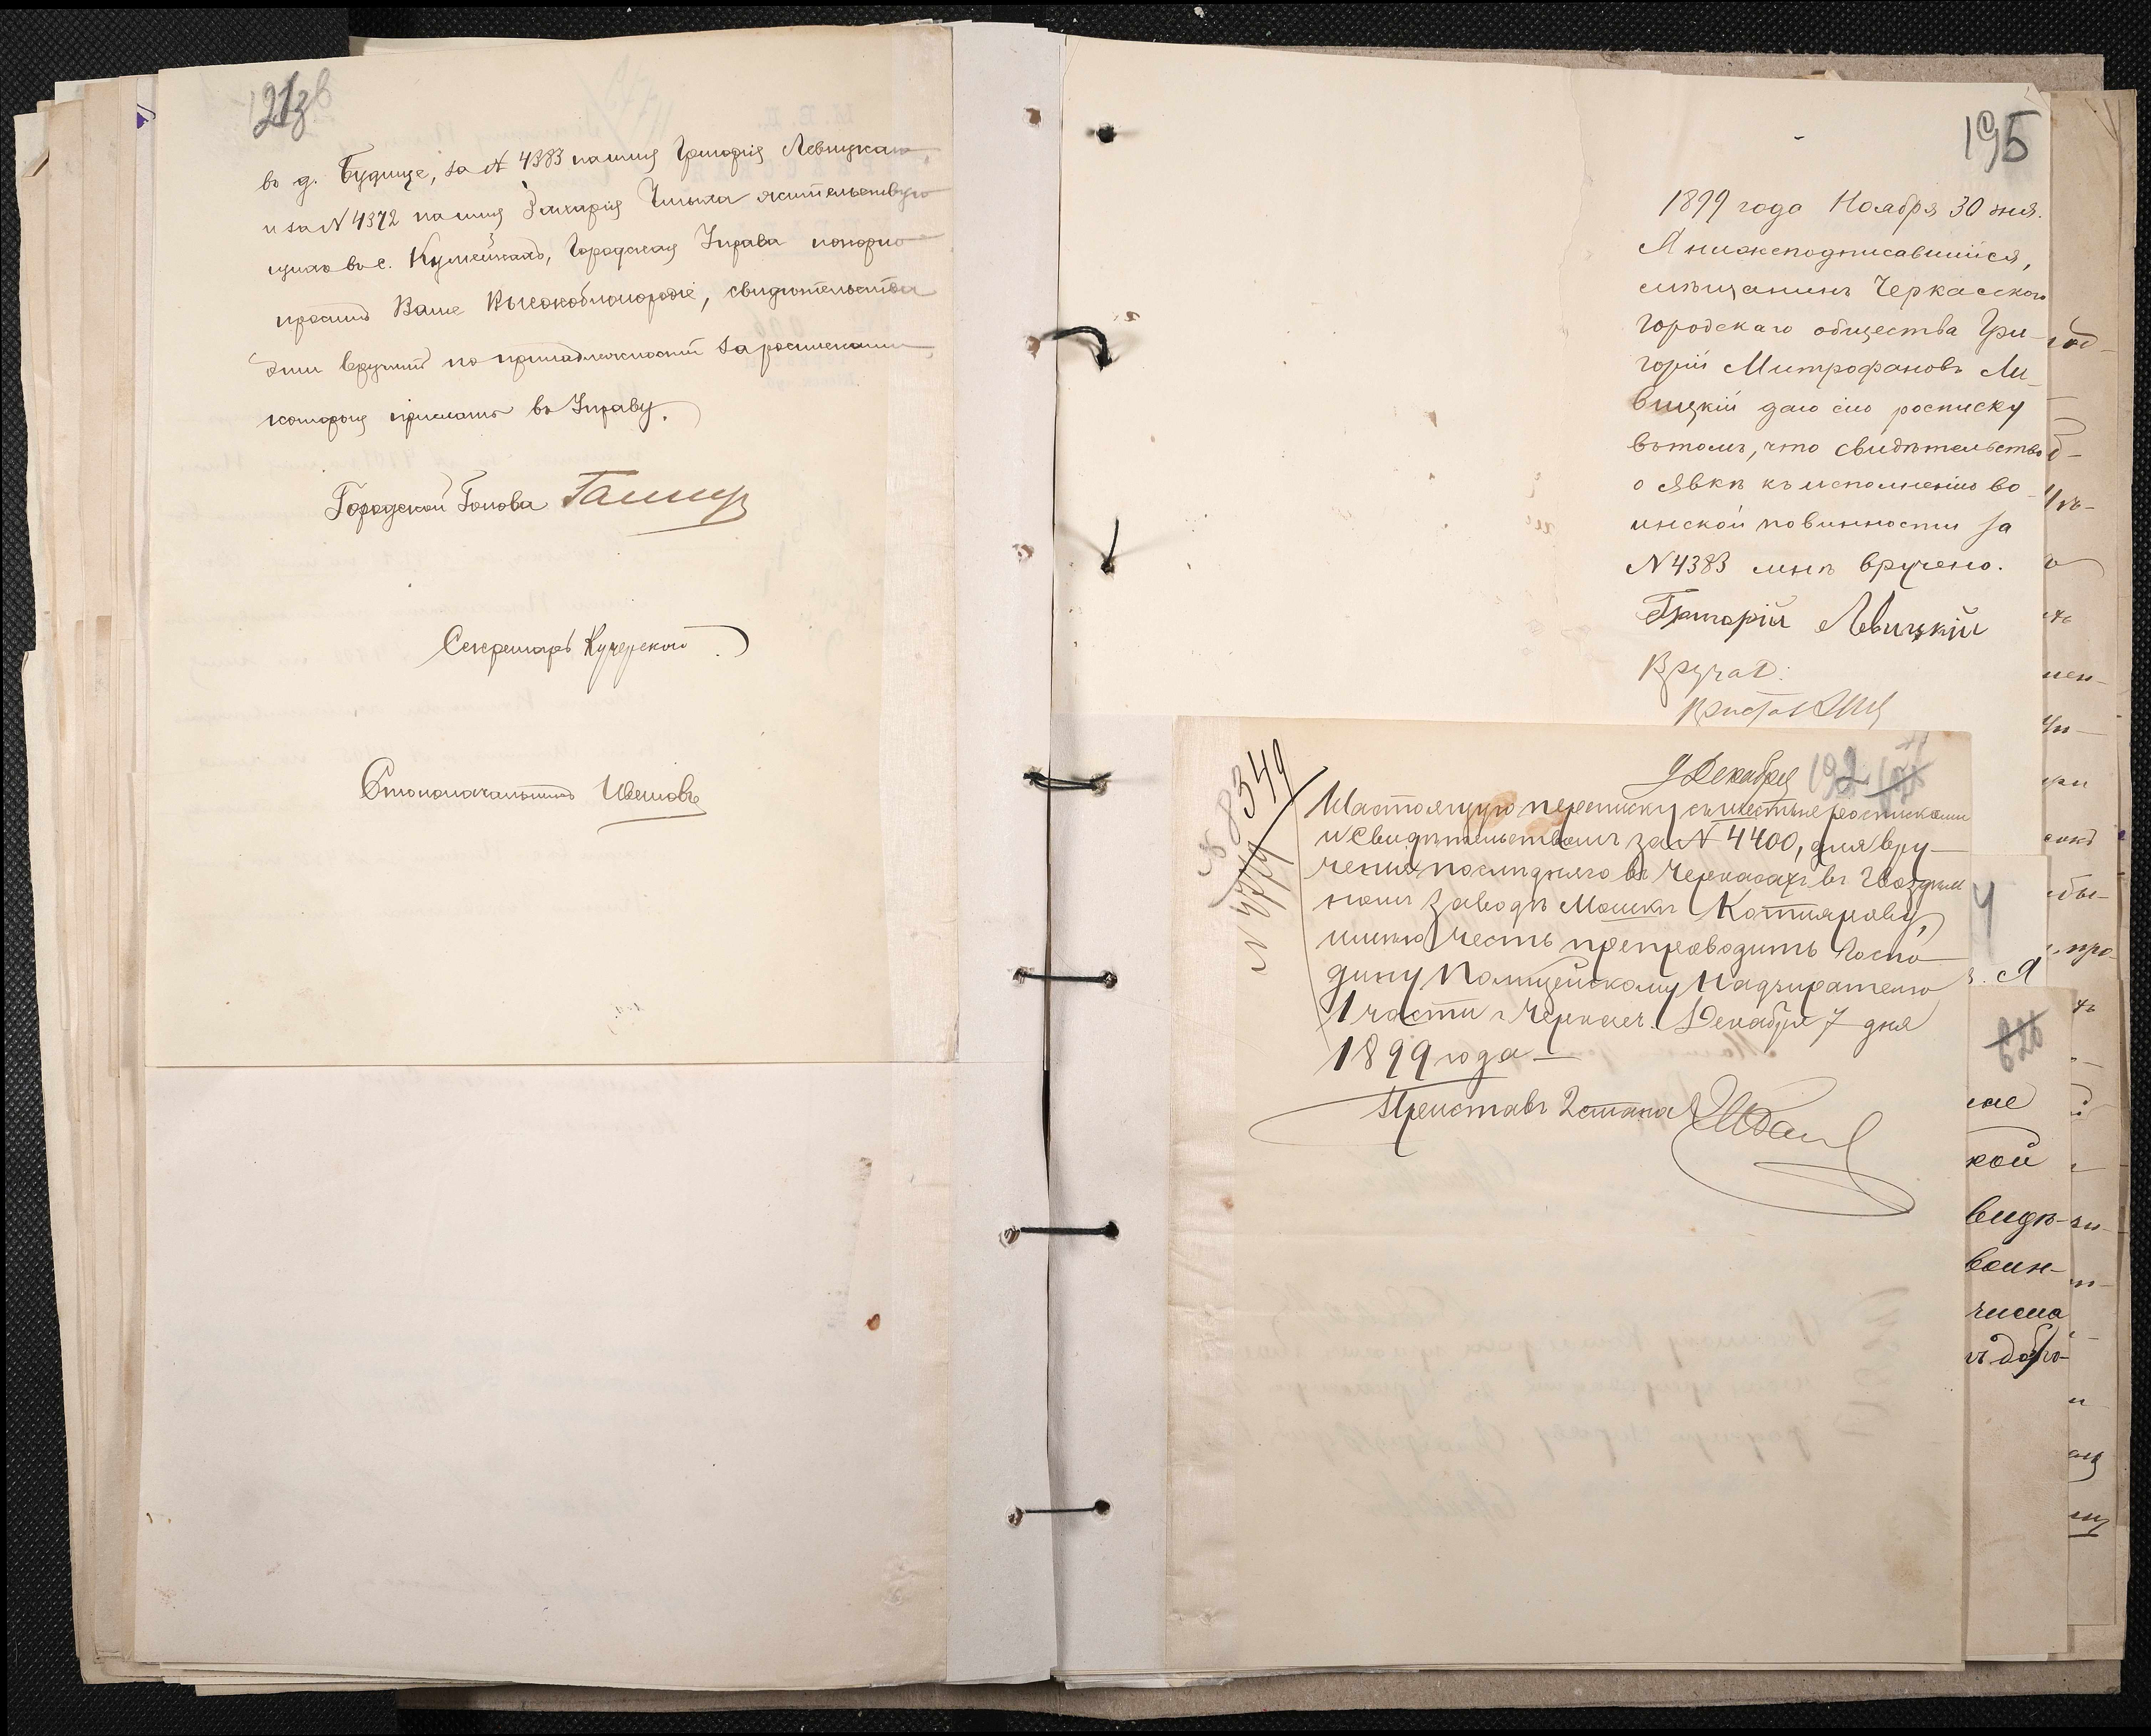 213
въ д. Будище, за № 4383 на имя Григорія Левицкаго
и за № 4372 на имя Захарія жительствую
щихъ въ с. Кумейкахъ, Городская Управа покорно
проситъ Ваше Высокоблагородіе, свидѣтельства
эти вручить по принадлежности за росписками
которыя прислать въ Управу.
Городской Голова
Секретарь Кучерской
Столоначальникъ Ивановъ
195
1899 года Ноября 30 дня.
Я нижеподписавшійся,
мѣщанинъ Черкасскаго
городскаго общества Гри-
горій Митрофановъ Ле-
вицкій даю сію росписку
въ томъ, что свидѣтельство
о явкѣ къ исполненію во-
инской повинности за
№ 4383 мнѣ вручено.
Григорій Левицкій
Вручалъ:
9 Декабря 192
8349
Настоящую переписку съ шестью росписками
и Свидѣтельствомъ за № 4400, для вру-
ченія послѣдняго въ Черкасахъ въ Гвоздиль
номъ заводѣ Мошкѣ Котлярову,
имѣю честь препроводить Госпо-
дину Полицейскому Надзирателю
1 части г. Черкасъ. Декабря 7 дня
1899 года —
Приставъ 2 стана
4
Я
626
кой
видѣ-
воин-
числа